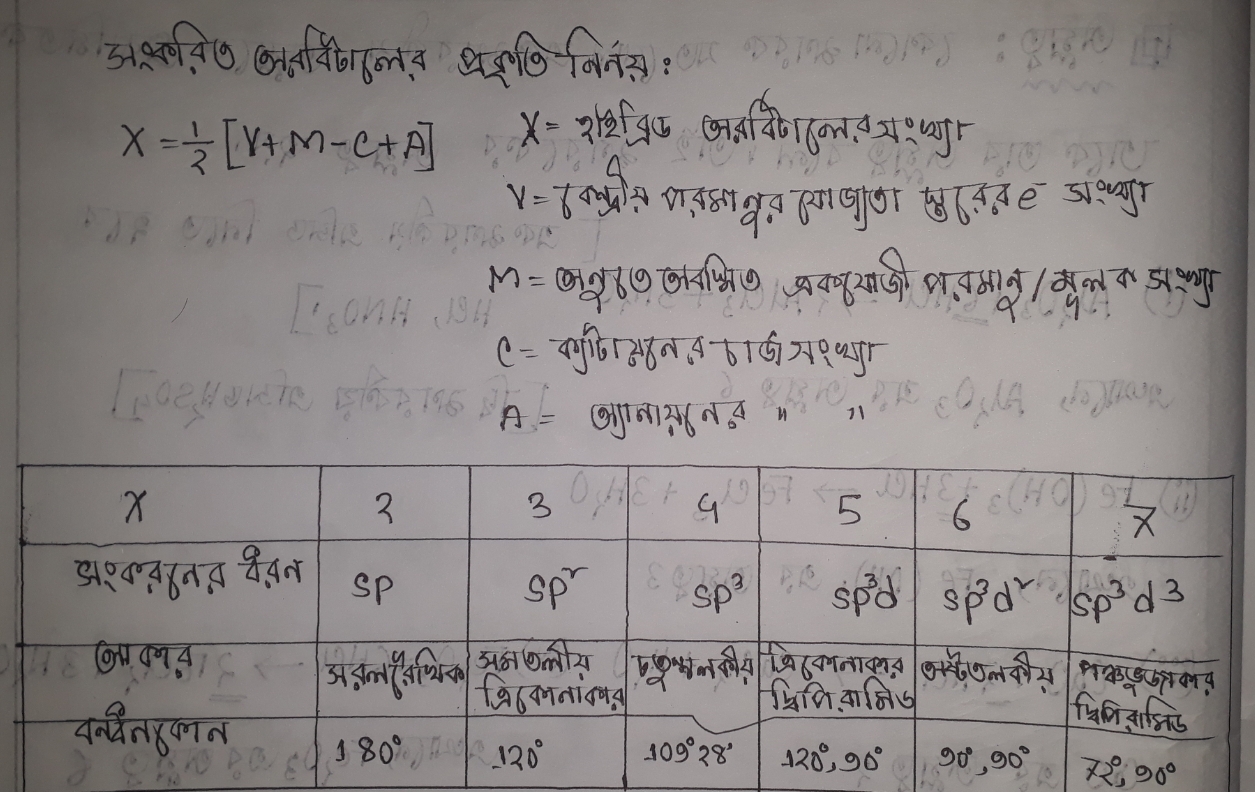 সংকরিত অরবিটালের প্রকৃতি নির্ণয়:
X = 1/2 [V+M-C+A]
X = হাইব্রিড অরবিটালের সংখ্যা
V = কেন্দ্রীয় পরমাণুর যোজ্যতা স্তরের e⁻ সংখ্যা
M = অনুতে অবস্থিত একযোজী পরমানু/মূলক সংখ্যা
C = ক্যাটায়নের চার্জ সংখ্যা
A = অ্যানায়নের " "
X 2 3 4 5 6 7
সংকরনের ধরন sp sp² sp³ sp³d sp³d² sp³d³
আকার সরলরৈখিক সমতলীয় ত্রিকোনাকার চতুস্তলকীয় ত্রিকোনাকার দ্বিপিরামিড অষ্টতলকীয় পঞ্চভুজাকার দ্বিপিরামিড
বন্ধনকোন 180° 120° 109°28' 120°,90° 90°,90° 72°,90°